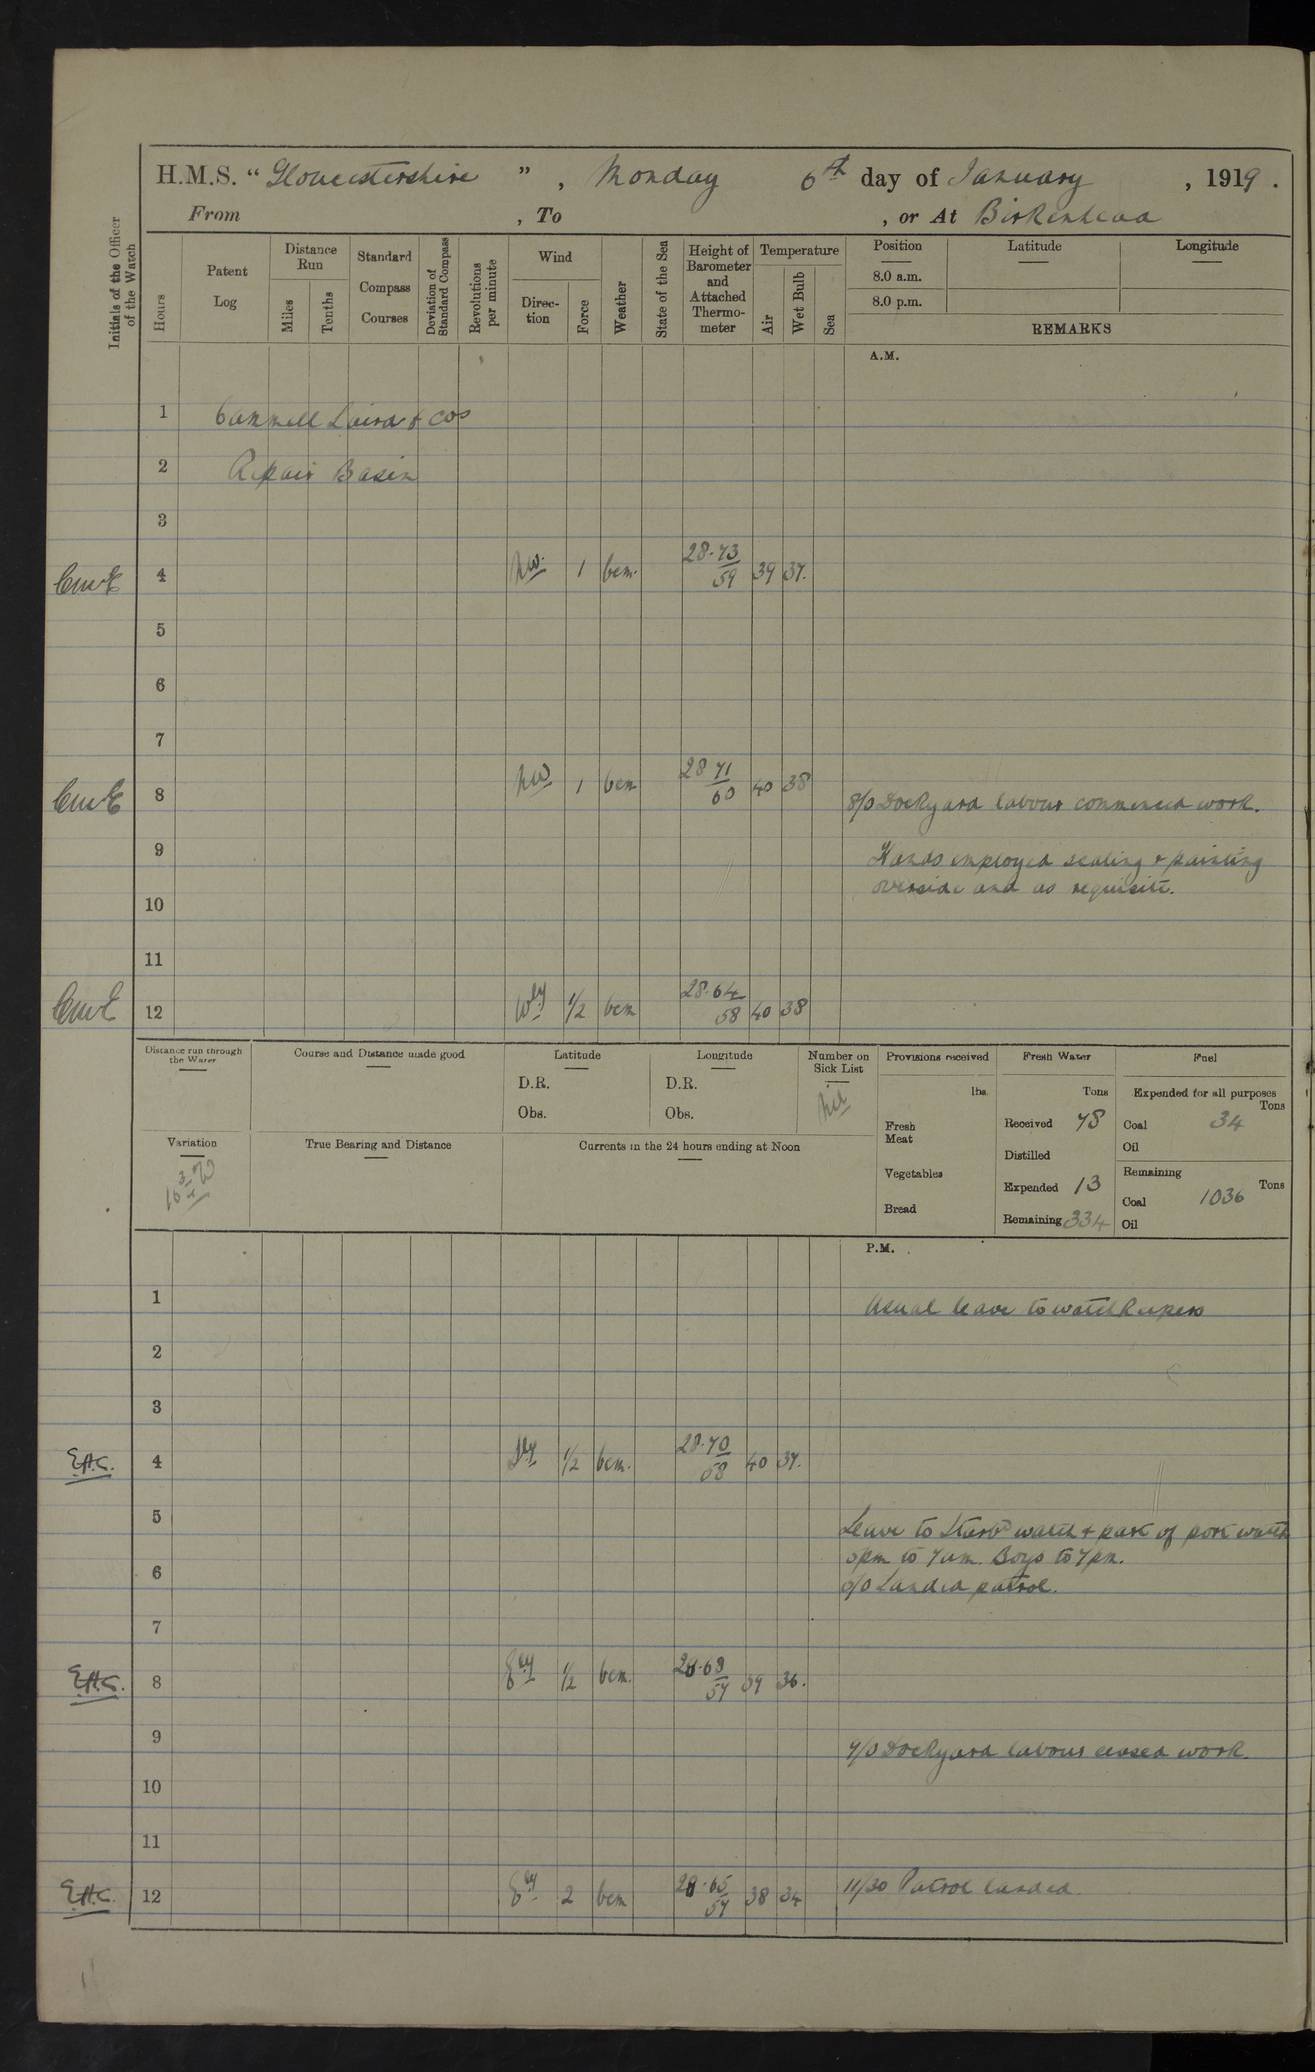 H.M.S. “ Gloucestershire ” , Monday 6th day of January , 1919 .
From , To , or At Birkenhead
Initials of the Officer of the Watch
Hours
Patent Log
Distance Run
Miles
Tenths
Standard Compass Courses
Deviation of Standard Compass
Revolutions per minute
Wind
Direc- tion
Force
Weather
State of the Sea
Height of Barometer and Attached Thermo- meter
Temperature
Air
Wet Bulb
Sea
Position Latitude Longitude
8.0 a.m.
8.0 p.m.
REMARKS
A.M.
1 Cammell Laird & Cos
2 Repair Basin
3
4 NW. 1 bcm. 28.73 / 59 39 37.
5
6
7
8 NW 1 bcm 28 71 / 60 40 38 8/0 Dockyard labour commenced work.
9 Hands employed scaling & painting
overside and as requisite.
10
11
12 Wly 1/2 bcm 28.64 / 58 40 38
Distance run through the Water
Course and Distance made good
Latitude
D.R.
Obs.
Longitude
D.R.
Obs.
Number on Sick List
Nil
Provisions received
lbs.
Fresh Meat
Vegetables
Bread
Fresh Water
Tons
Received 78
Distilled
Expended 13
Remaining 334
Fuel
Expended for all purposes
Tons
Coal 34
Oil
Remaining
Tons
Coal 1036
Oil
Variation
16 3/4 W
True Bearing and Distance
Currents in the 24 hours ending at Noon
P.M.
1 Usual leave to watchkeepers
2
3
E.H.C. 4 1/2 bcm. 28.70 / 58 40 37.
5 Leave to Starbd watch & part of port watch
5pm to 7am. Boys to 7pm.
6 Landed patrol.
7
E.H.C. 8 Ely 1/2 bcm. 28.68 / 57 36.
9 9/0 Dockyard labour ceased work.
10
11
E.H.C. 12 Ely 2 bcm 28.65 / 57 38 34 11/30 Patrol landed.